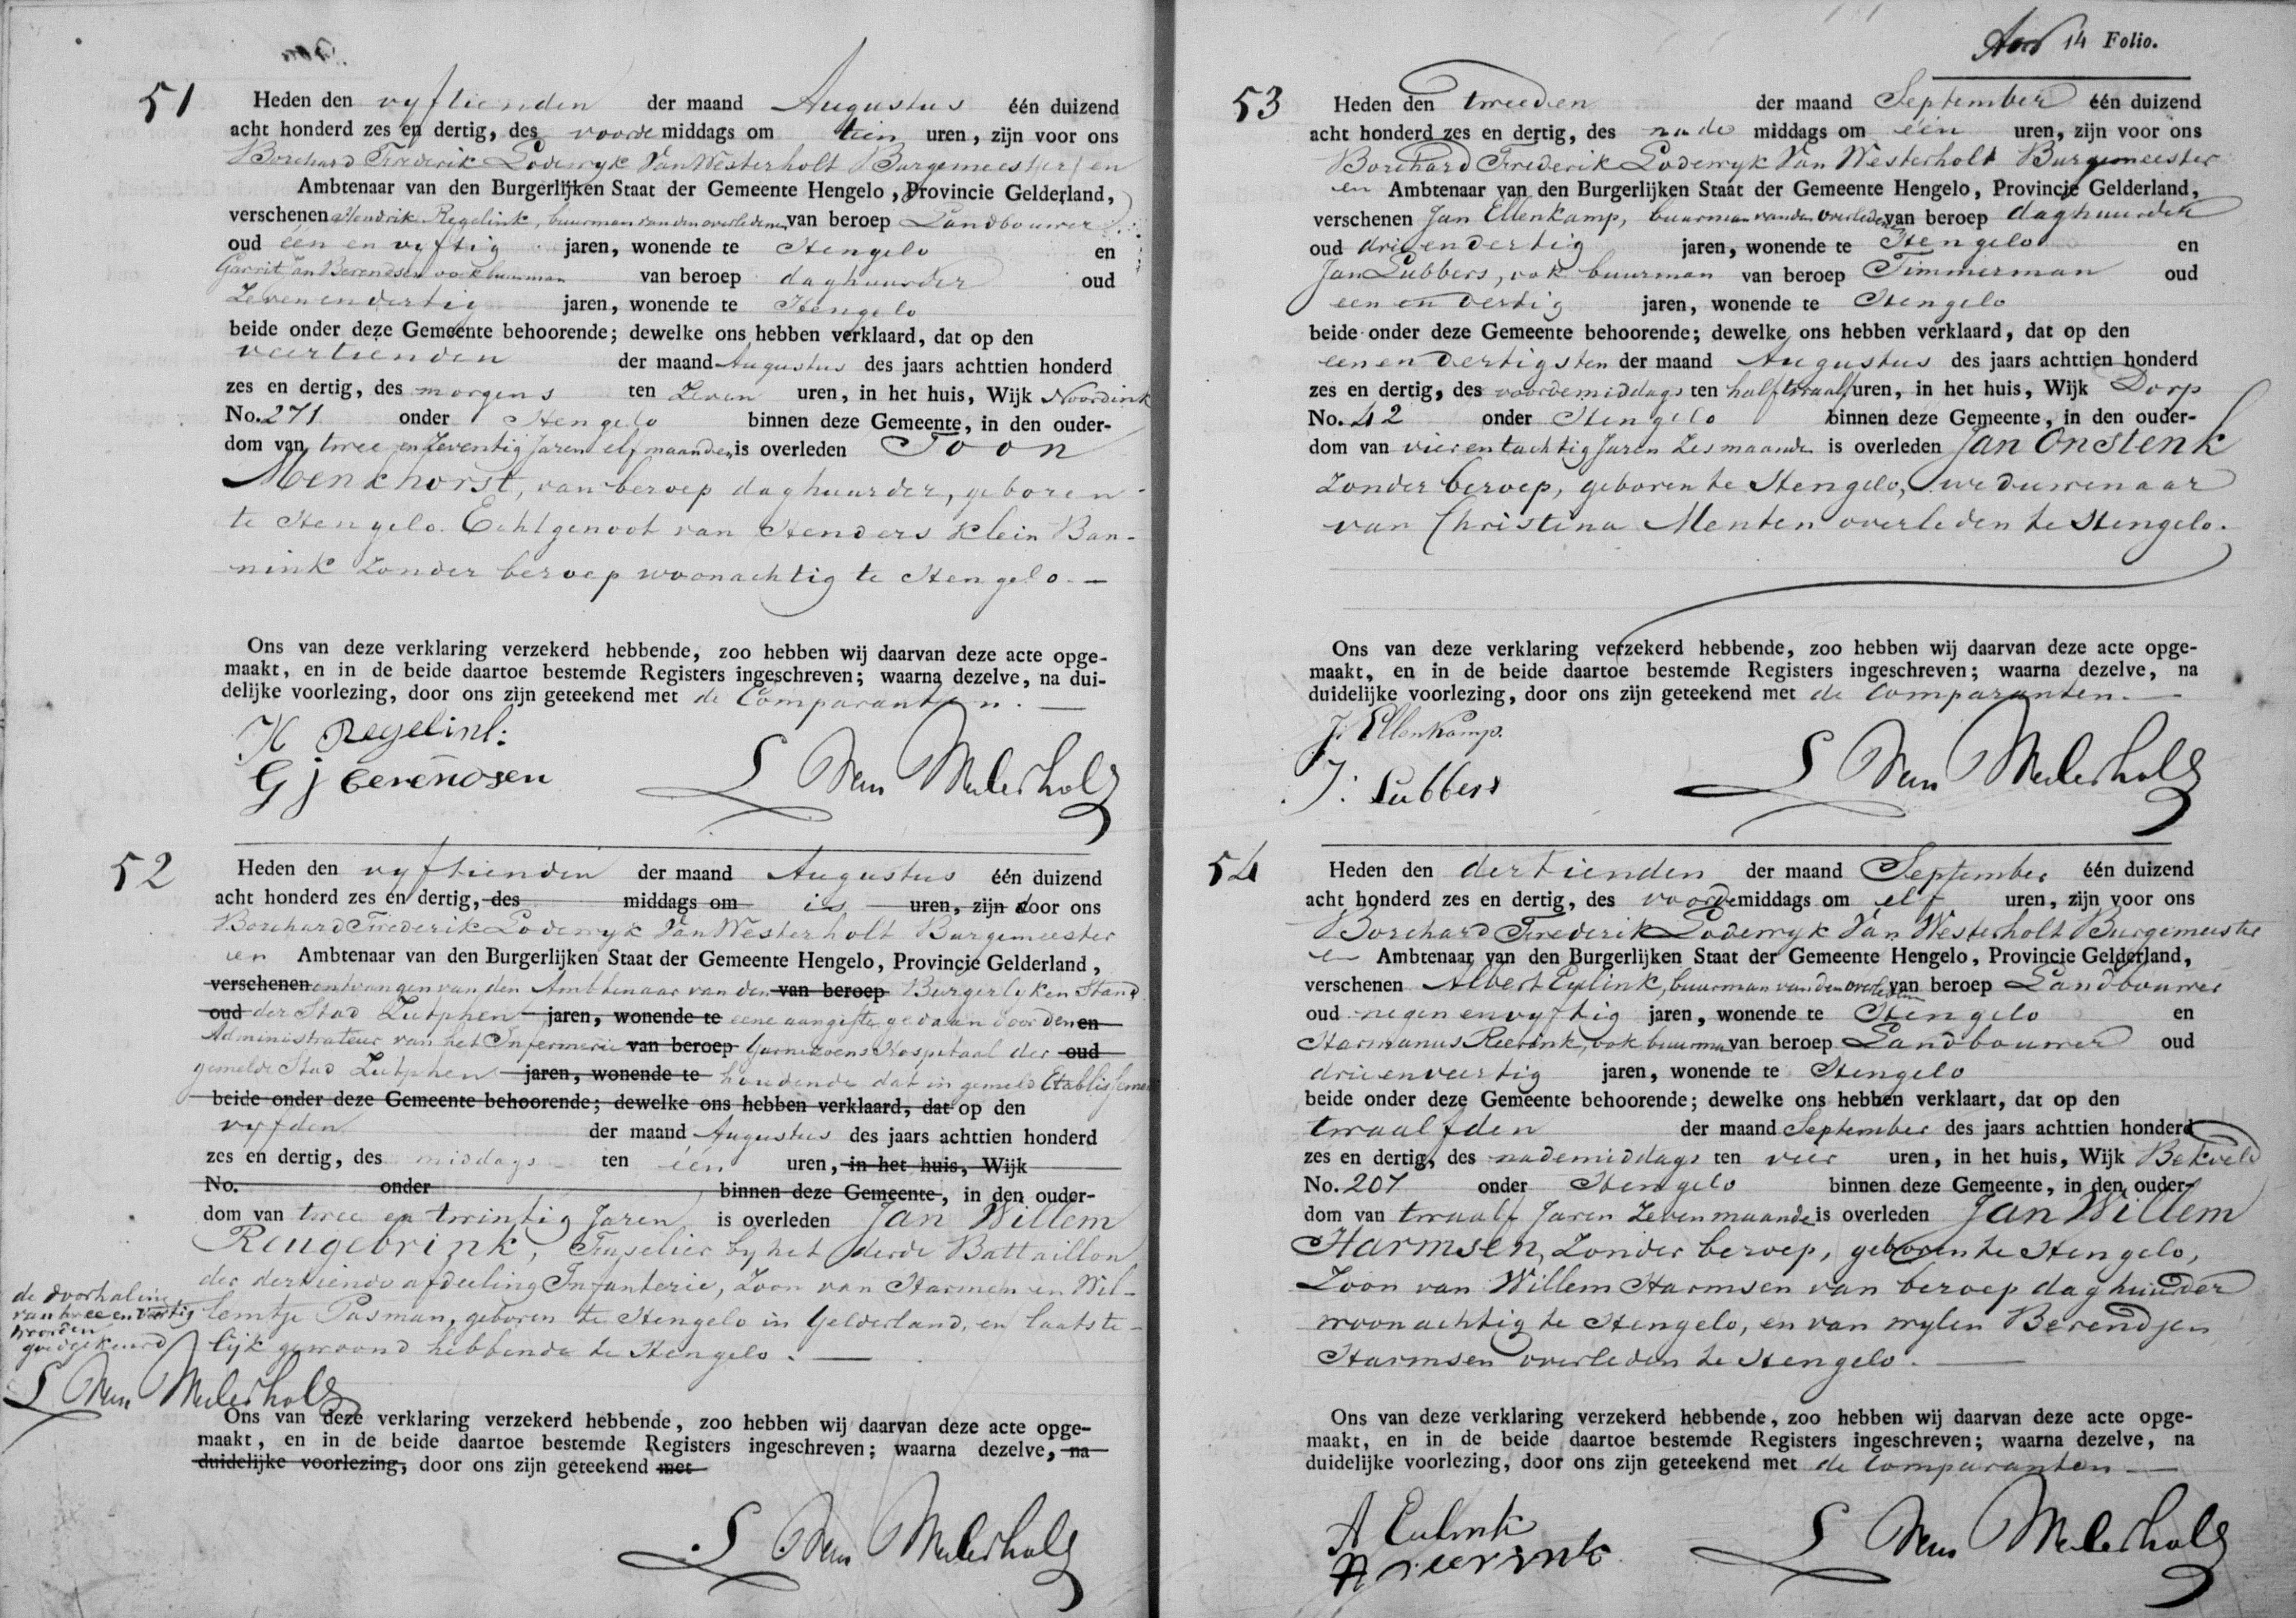 51
Heden den vyftienden der maand Augustus één duizend
acht honderd zes en dertig, des voorde middags om tien uren, zijn voor ons
Borchard Frederik Lodewyk Van Westerholt Burgemeester en
Ambtenaar van den Burgerlijken Staat der Gemeente Hengelo, Provincie Gelderland,
verschenen Hendrik Regelink, buurman van den overledenen van beroep Landbouwer
oud één en vyftig jaren, wonende te Hengelo en
Garrit Jan Berendsen ook buurman van beroep daghuurder oud
Zevenendertig jaren, wonende te Hengelo
beide onder deze Gemeente behoorende; dewelke ons hebben verklaard, dat op den
veertienden der maand Augustus des jaars achttien honderd
zes en dertig, des morgens ten Zeven uren, in het huis, Wijk Noordink
No. 271 onder Hengelo binnen deze Gemeente, in den ouder-
dom van twee en Zeventig Jaren elf maanden is overleden Toon
Menkhorst, van beroep daghuurder, geboren
te Hengelo. Echtgenoot van Henders Klein Ban-
nink Zonder beroep woonachtig te Hengelo. —
Ons van deze verklaring verzekerd hebbende, zoo hebben wij daarvan deze acte opge-
maakt, en in de beide daartoe bestemde Registers ingeschreven; waarna dezelve, na dui-
delijke voorlezing, door ons zijn geteekend met de Comparanten. —
H Regelink
G j berendsen
L Van Westerholt
52
Heden den vyftienden der maand Augustus één duizend
acht honderd zes en dertig, des middags om is uren, zijn door ons
Borchard Frederik Lodewyk Van Westerholt Burgemeester
en Ambtenaar van den Burgerlijken Staat der Gemeente Hengelo, Provincie Gelderland,
verschenen ontvangen van den Ambtenaar van den van beroep Burgerlyken Stand
oud der Stad Zutphen jaren, wonende te eene aangifte gedaan door den en
Administrateur van het Infermerie van beroep Garnizoens Hospitaal der oud
gemelde Stad Zutphen jaren, wonende te houdende dat in gemeld Etablissement
beide onder deze Gemeente behoorende; dewelke ons hebben verklaard, dat op den
vyfden der maand Augustus des jaars achttien honderd
zes en dertig, des middags ten één uren, in het huis, Wijk
No. onder binnen deze Gemeente, in den ouder-
dom van twee en twintig Jaren is overleden Jan Willem
Reugebrink, Fuselier by het derde Battaillon
der dertiende afdeeling Infanterie, Zoon van Harmen en Wil-
lemtje Pasman, geboren te Hengelo in Gelderland, en laatste-
lijk gewoond hebbende te Hengelo. —
de doorhaling
van twee en dertig
woorden
goedgekeurd
L Van Westerholt
Ons van deze verklaring verzekerd hebbende, zoo hebben wij daarvan deze acte opge-
maakt, en in de beide daartoe bestemde Registers ingeschreven; waarna dezelve, na
duidelijke voorlezing, door ons zijn geteekend met
L Van Westerholt
14 Folio.
53
Heden den tweeden der maand September één duizend
acht honderd zes en dertig, des nade middags om één uren, zijn voor ons
Borchard Frederik Lodewyk Van Westerholt Burgemeester
en Ambtenaar van den Burgerlijken Staat der Gemeente Hengelo, Provincie Gelderland,
verschenen Jan Ellenkamp, buurman van den overledenen van beroep daghuurder
oud drieendertig jaren, wonende te Hengelo en
Jan Lubbers, ook buurman van beroep Timmerman oud
een en dertig jaren, wonende te Hengelo
beide onder deze Gemeente behoorende; dewelke ons hebben verklaard, dat op den
een en dertigsten der maand Augustus des jaars achttien honderd
zes en dertig, des voordemiddags ten half twaalf uren, in het huis, Wijk Dorp
No. 42 onder Hengelo binnen deze Gemeente, in den ouder-
dom van vierentachtig Jaren Zes maanden is overleden Jan Onstenk
Zonder beroep, geboren te Hengelo, weduwenaar
van Christina Menten overleden te Hengelo.
Ons van deze verklaring verzekerd hebbende, zoo hebben wij daarvan deze acte opge-
maakt, en in de beide daartoe bestemde Registers ingeschreven; waarna dezelve, na
duidelijke voorlezing, door ons zijn geteekend met de Comparanten. —
J: Ellenkamp.
J: Lubbers
L Van Westerholt
54
Heden den dertienden der maand September één duizend
acht honderd zes en dertig, des voordemiddags om elf uren, zijn voor ons
Borchard Frederik Lodewyk Van Westerholt Burgemeester
en Ambtenaar van den Burgerlijken Staat der Gemeente Hengelo, Provincie Gelderland,
verschenen Albert Eylink, buurman van den overledenen van beroep Landbouwer
oud negen envyftig jaren, wonende te Hengelo en
Harmanus Reerink, ook buurman van beroep Landbouwer oud
drieenveertig jaren, wonende te Hengelo
beide onder deze Gemeente behoorende; dewelke ons hebben verklaart, dat op den
twaalfden der maand September des jaars achttien honderd
zes en dertig, des nademiddags ten vier uren, in het huis, Wijk Bekveld
No. 207 onder Hengelo binnen deze Gemeente, in den ouder-
dom van twaalf Jaren Zeven maanden is overleden Jan Willem
Harmsen, Zonder beroep, geboren te Hengelo,
Zoon van Willem Harmsen van beroep daghuurder
woonachtig te Hengelo, en van wylen Berendjen
Harmsen overleden te Hengelo. —
Ons van deze verklaring verzekerd hebbende, zoo hebben wij daarvan deze acte opge-
maakt, en in de beide daartoe bestemde Registers ingeschreven; waarna dezelve, na
duidelijke voorlezing, door ons zijn geteekend met de Comparanten —
A Eulink
H reerink
L Van Westerholt